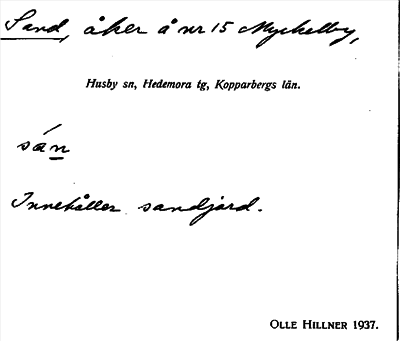 Sand, åker å nr 15 Myckelby,
Husby sn, Hedemora tg, Kopparbergs län.
sán
Innehåller sandjord.
OLLE HILLNER 1937.